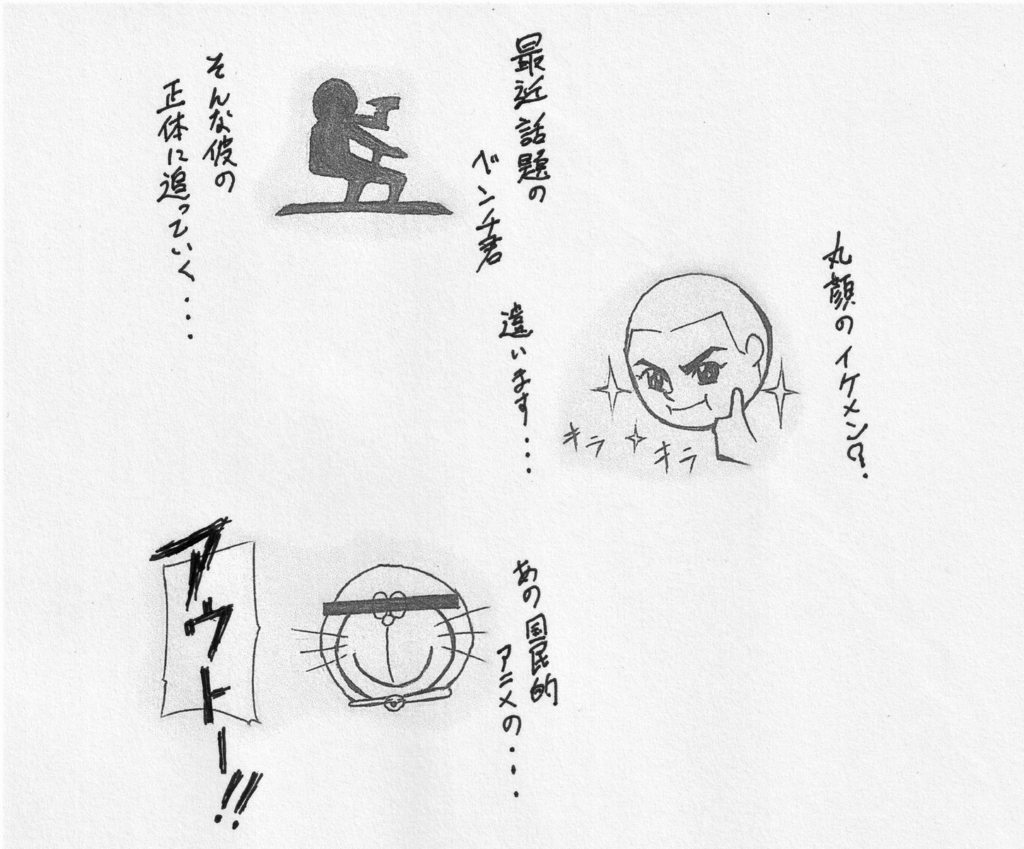 最近話題の
ベンチ君
そんな彼の
正体に迫っていく・・・
丸顔のイケメン?.
キラ
キラ
違います・・・
あの国民的
アニメの・・・
アウトー!!